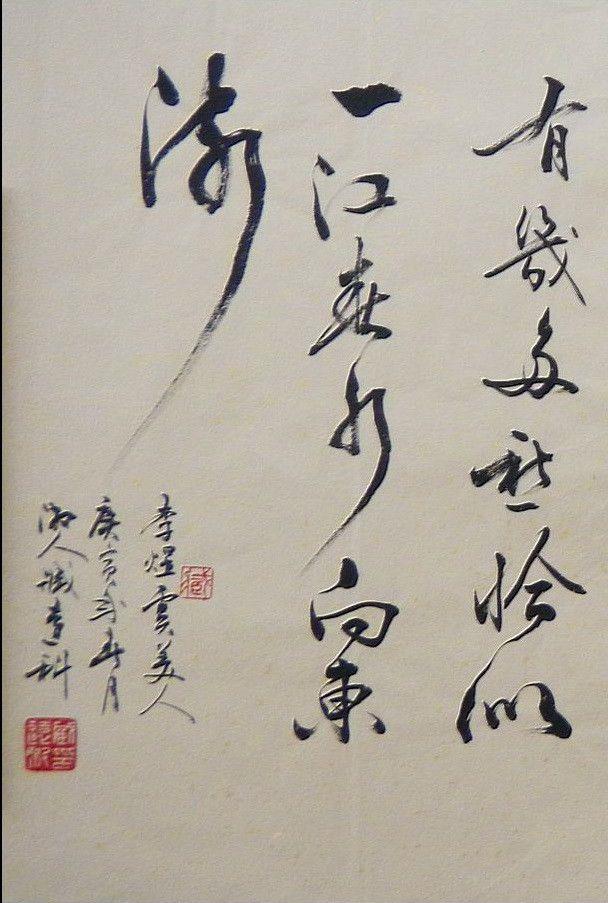 有幾多愁恰似
一江春水向東
流
李煜虞美人
庚寅年春月
湘人臧科